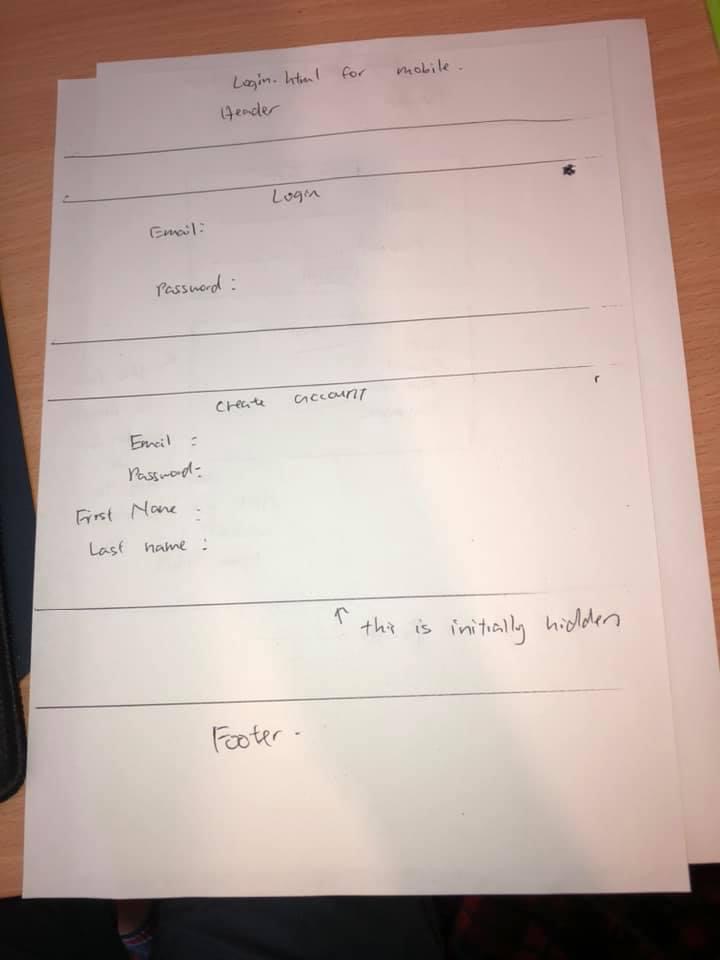 Login.html for mobile.
Header
Login
Email:
Password:
Create account
Email:
Password:
First Name:
Last name:
↑ this is initially hidden
Footer.